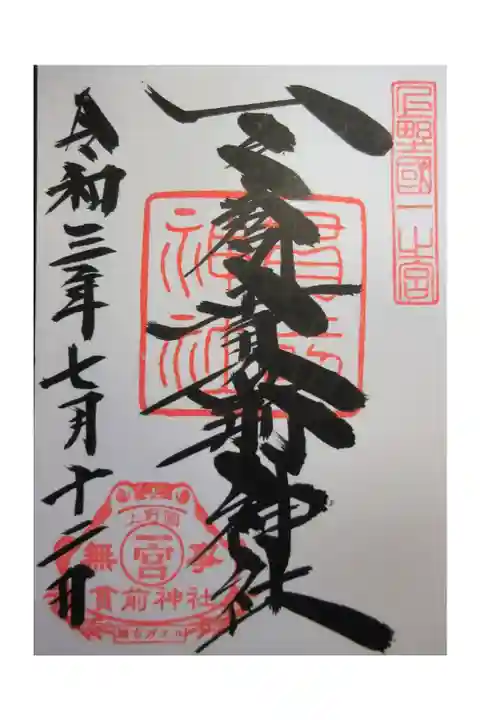 上野國一之宮
一之宮貫前神社
貫前
神社
令和三年七月十二日
上野國
無 一宮 事
貫前神社